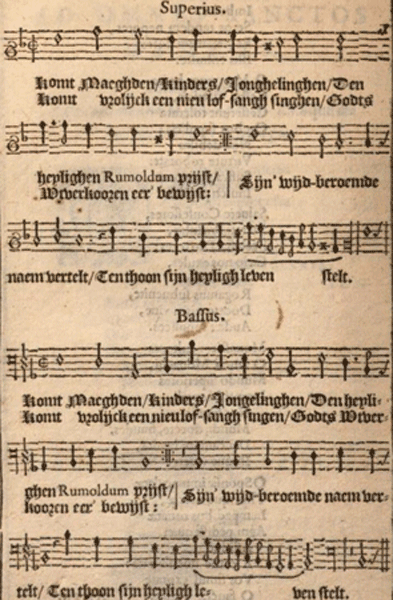 Superius.
Komt Maeghden/Kinders/Jonghelinghen/Den
Komt vrolijck een nieu lof-sangh singhen/Godts
heylighen Rumoldum prijst/ Sijn' wijd-beroemde
Wtverkooren eer' bewijst:
naem vertelt/Ten thoon sijn heyligh leven stelt.
Bassus.
Komt Maeghden/Kinders/Jongelinghen/Den heyli-
Komt vrolijck een nieu lof-sangh singen/Godts Wtver-
ghen Rumoldum prijst/ Sijn' wijd-beroemde naem ver-
kooren eer' bewijst:
telt/ Ten thoon sijn heyligh le- ven stelt.